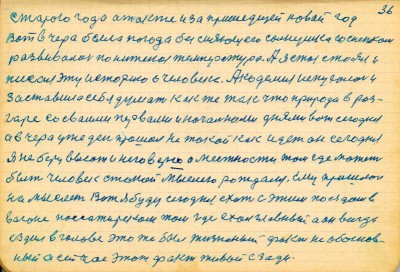 36
старого года а также и за пришедший новай год
Вот вчера была погода без сияющего солнушка со снежком
развивалас положителная температура. А я стоял и
писал эту историю о человеке. Академия испугалас и
заставила себя думат как же так что природа в раз-
гаре со своими первами и началнами днями вот сегодня
а вчера уже ден прошол не такой как идет он сегодня
Я на беру высоты него верно о местности там где может
быт человек с такой мыслею рождатся. Ему пришлос
на мыслит Вот я буду сегодня ехат с этим поездом в
вагоне пассажирском там где ехал главный а он всегда
ездил в голове это же был жизненый факт не обоснов-
ный а сейчас этот факт живый сзади.